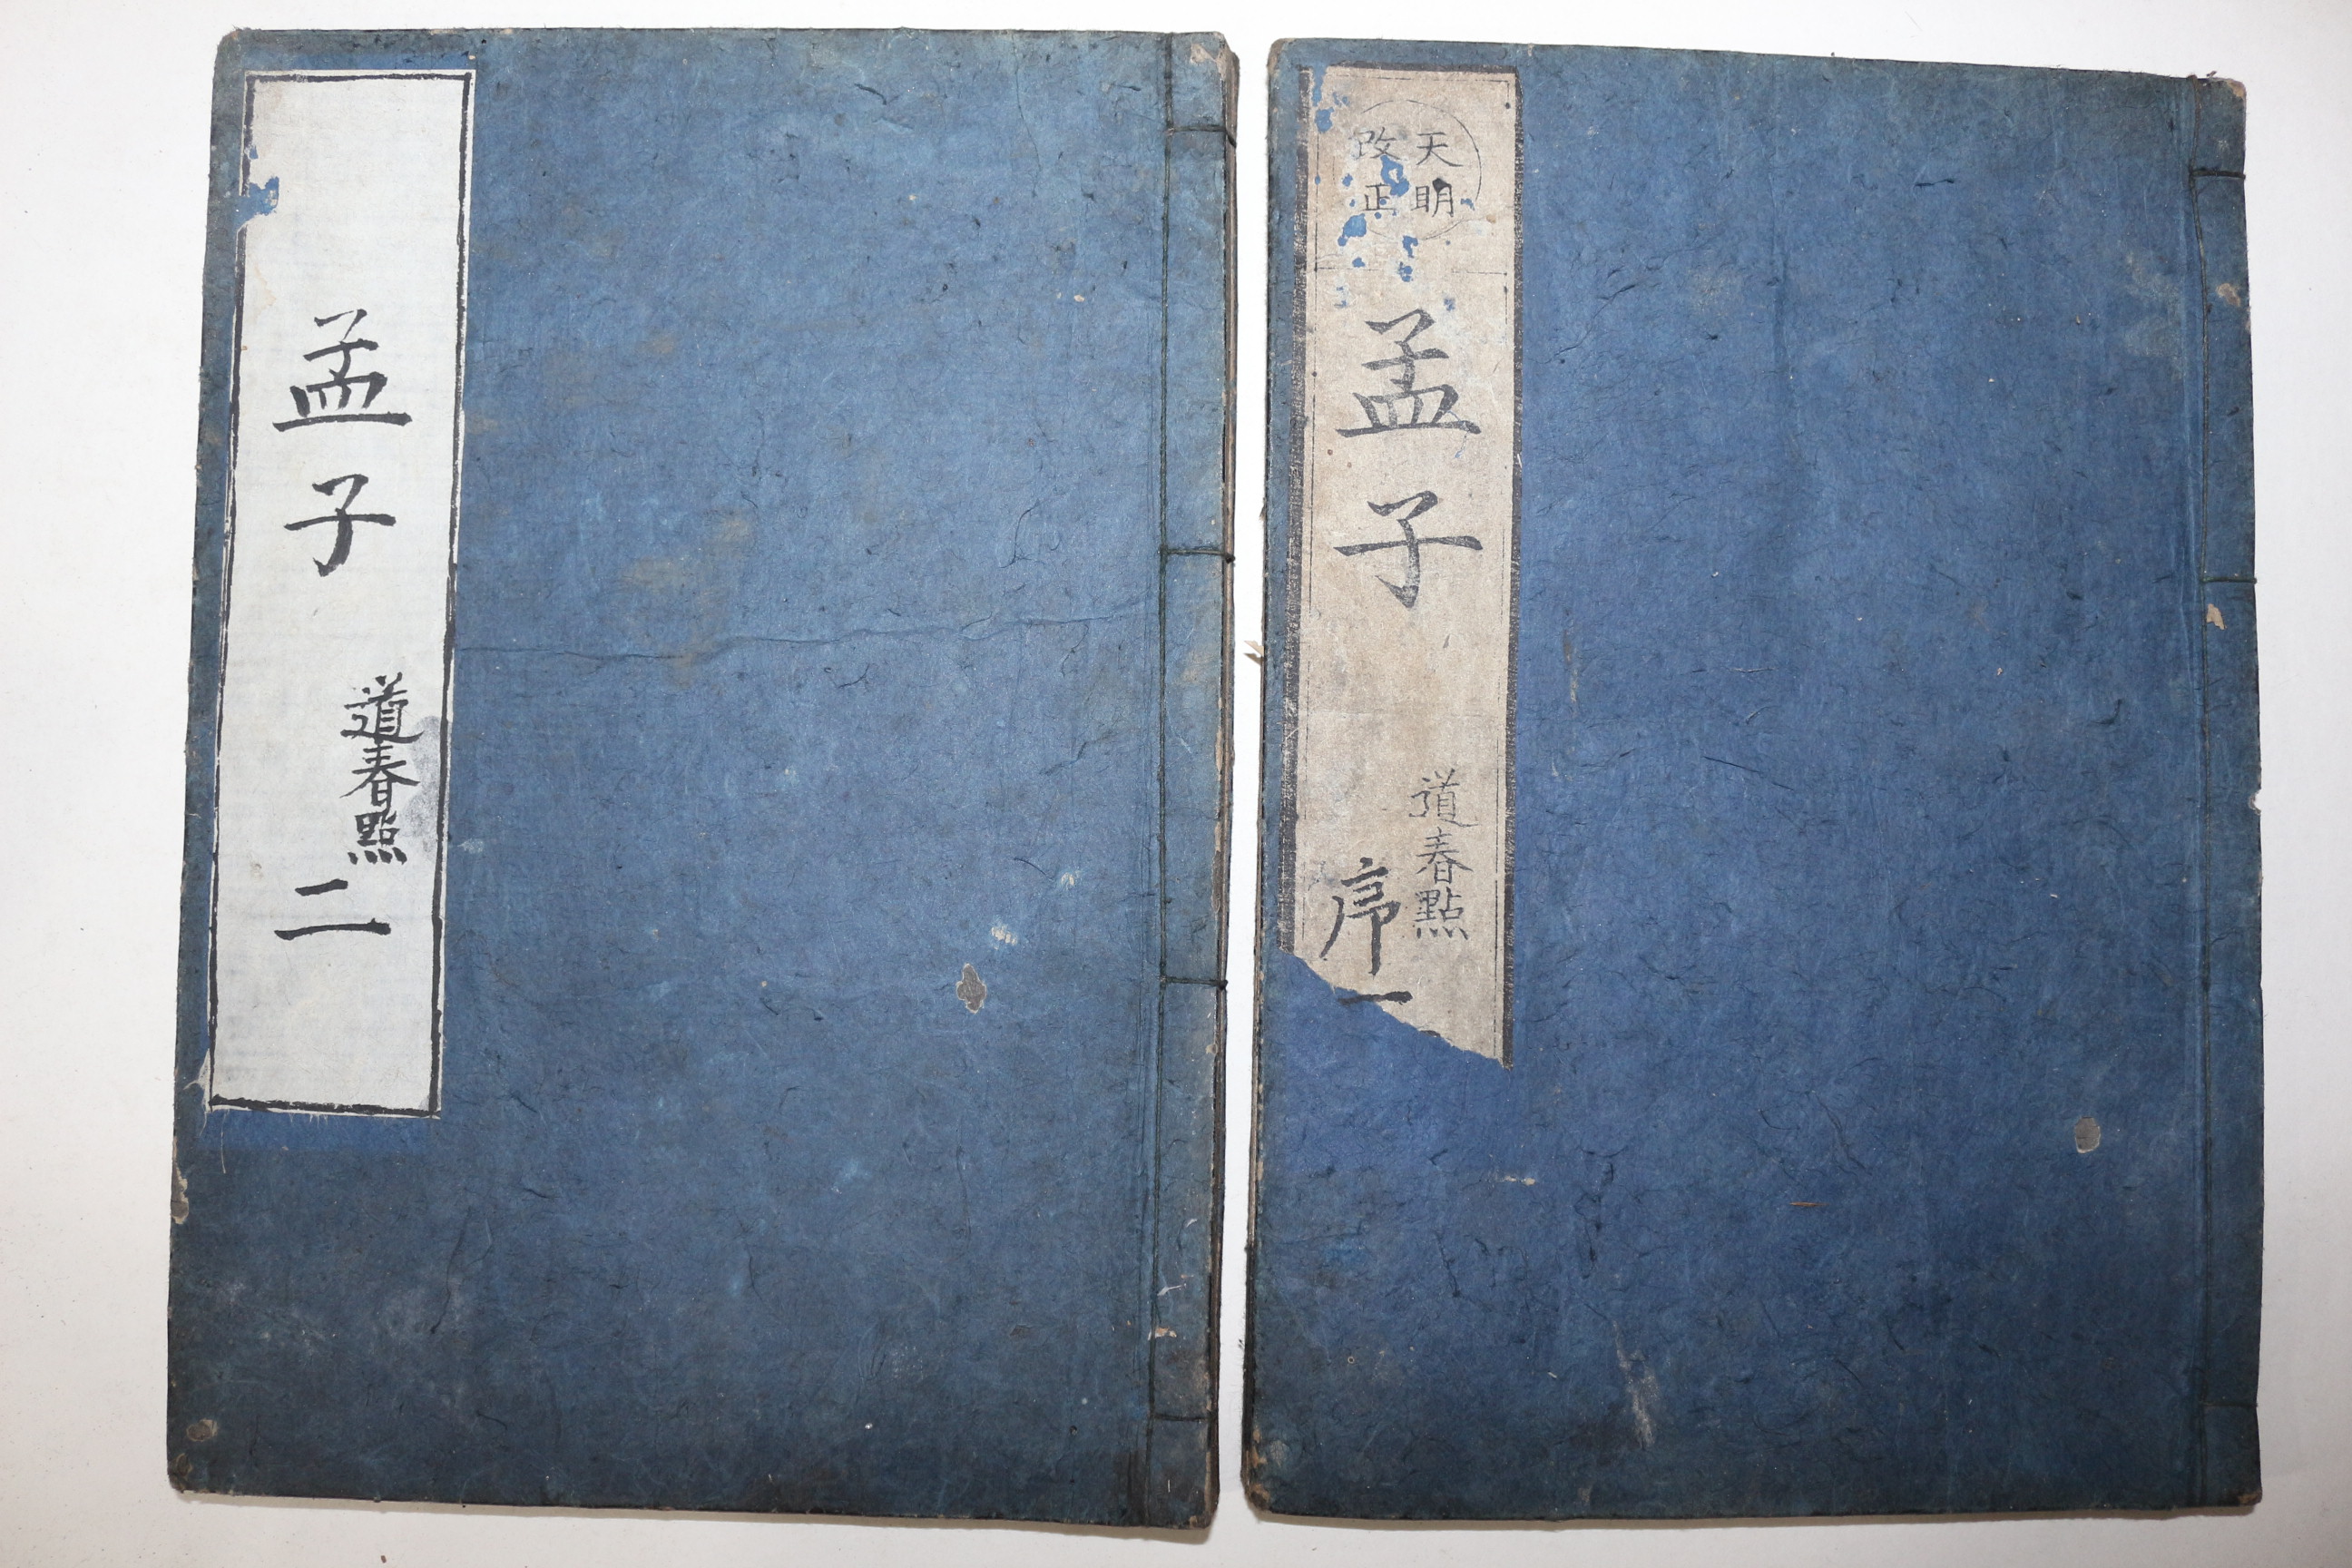 天明
改正
孟子
道春點
序一
孟子
道春點
二